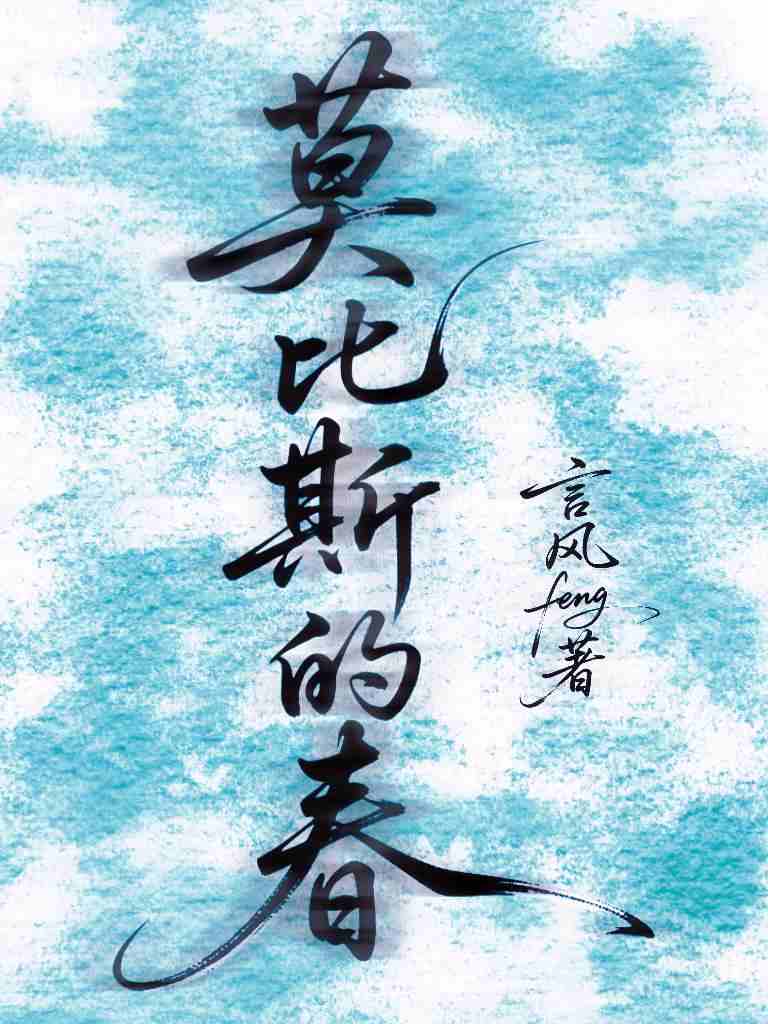 莫比斯的春
言风feng著